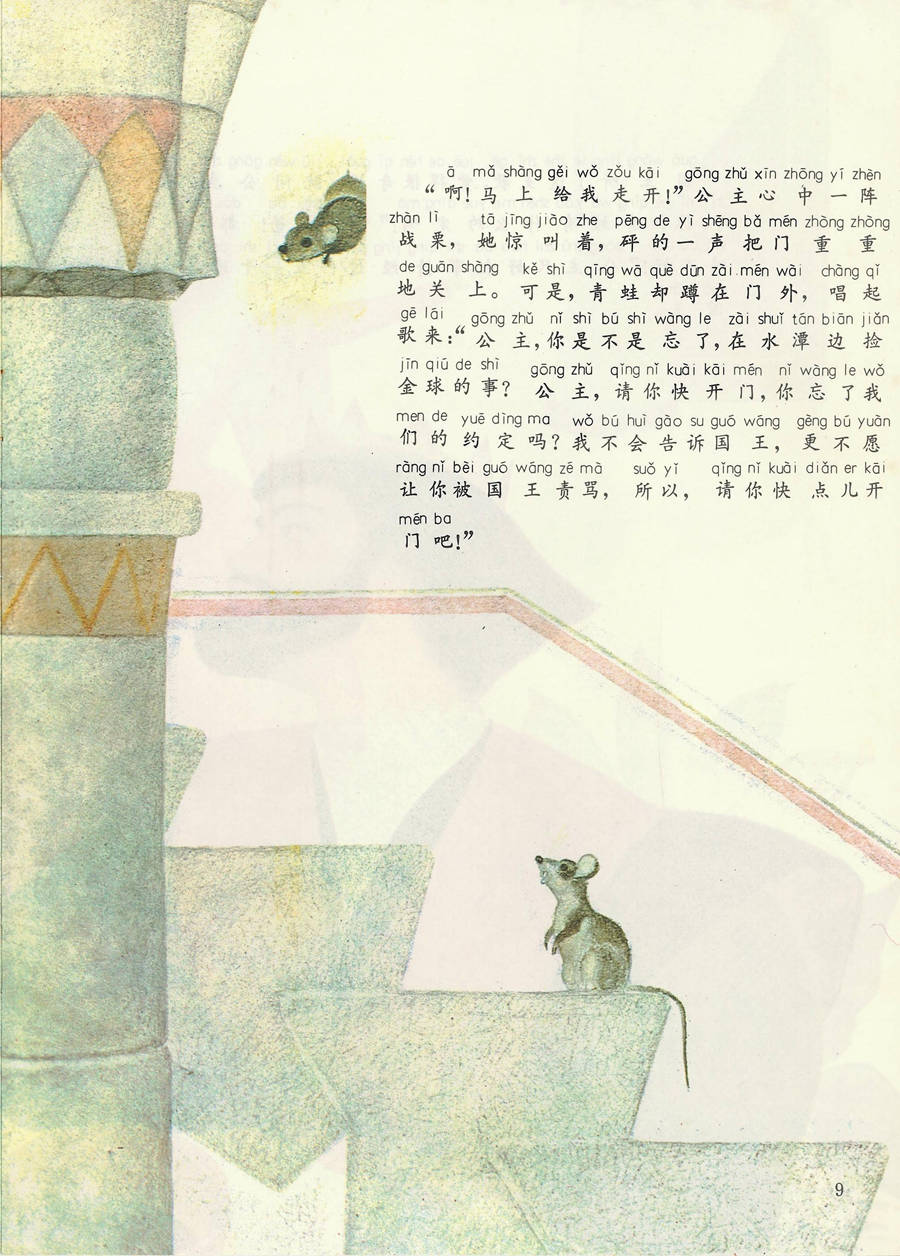 ā mǎ shàng gěi wǒ zǒu kāi gōng zhǔ xīn zhōng yī zhèn
“啊!马上给我走开!”公主心中一阵
zhàn lì tā jīng jiào zhe pēng de yì shēng bǎ mén zhòng zhòng
战栗，她惊叫着，砰的一声把门重重
de guān shàng kě shì qīng wā què dūn zài mén wài chàng qǐ
地关上。可是，青蛙却蹲在门外，唱起
gē lái gōng zhǔ nǐ shì bú shì wàng le zài shuǐ tán biān jiǎn
歌来:“公主，你是不是忘了，在水潭边捡
jīn qiú de shì gōng zhǔ qǐng nǐ kuài kāi mén nǐ wàng le wǒ
金球的事？公主，请你快开门，你忘了我
men de yuē dìng ma wǒ bú huì gào su guó wáng gèng bú yuàn
们的约定吗？我不会告诉国王，更不愿
ràng nǐ bèi guó wāng zé mà suǒ yǐ qǐng nǐ kuài diǎn er kāi
让你被国王责骂，所以，请你快点儿开
mén ba
门吧!”
9